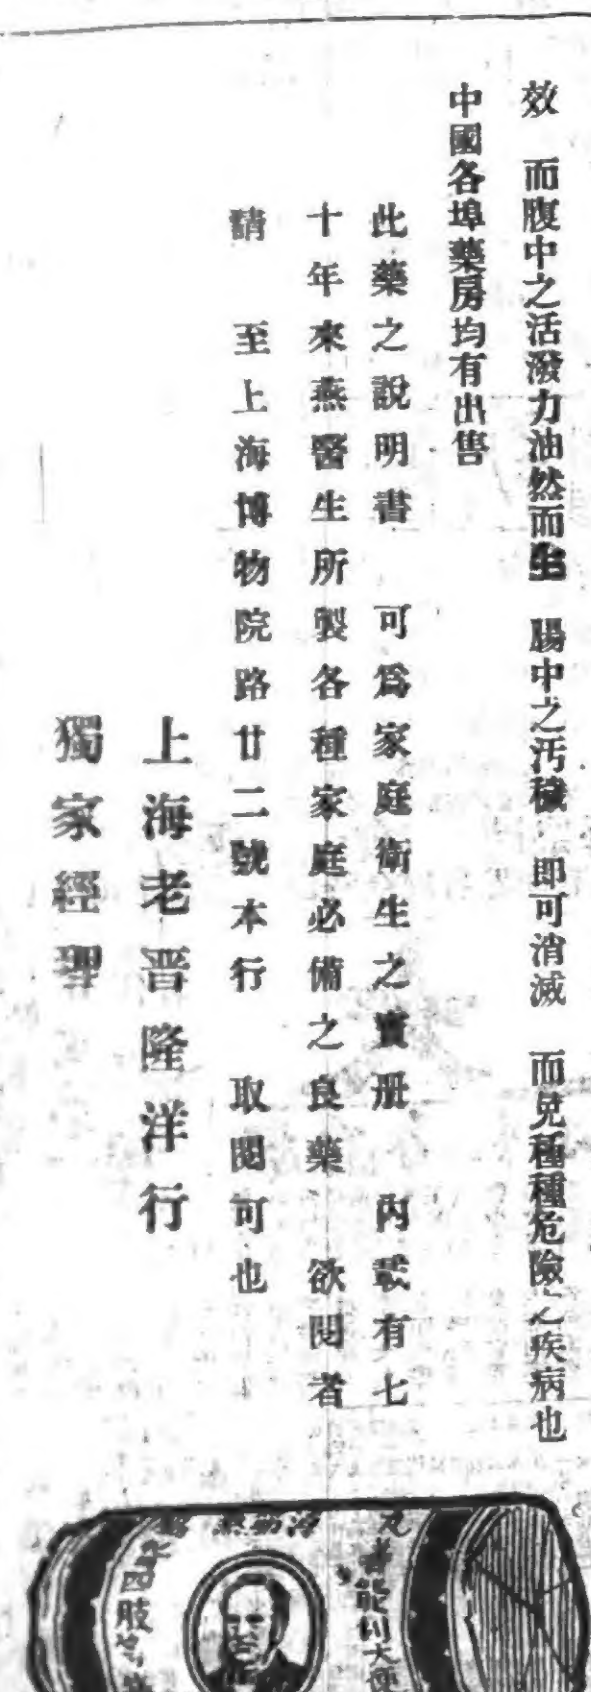 效　而腹中之活潑力油然而生　腸中之汚穢　即可消滅　而免種種危險之疾病也
中國各埠藥房均有出售
此藥之說明書　可爲家庭衛生之寶册　內載有七
十年來燕醫生所製各種家庭必備之良藥　欲閱者
請　至上海博物院路廿二號本行　取閱可也
上海老晋隆洋行
獨家經理
者能利大便
四肢